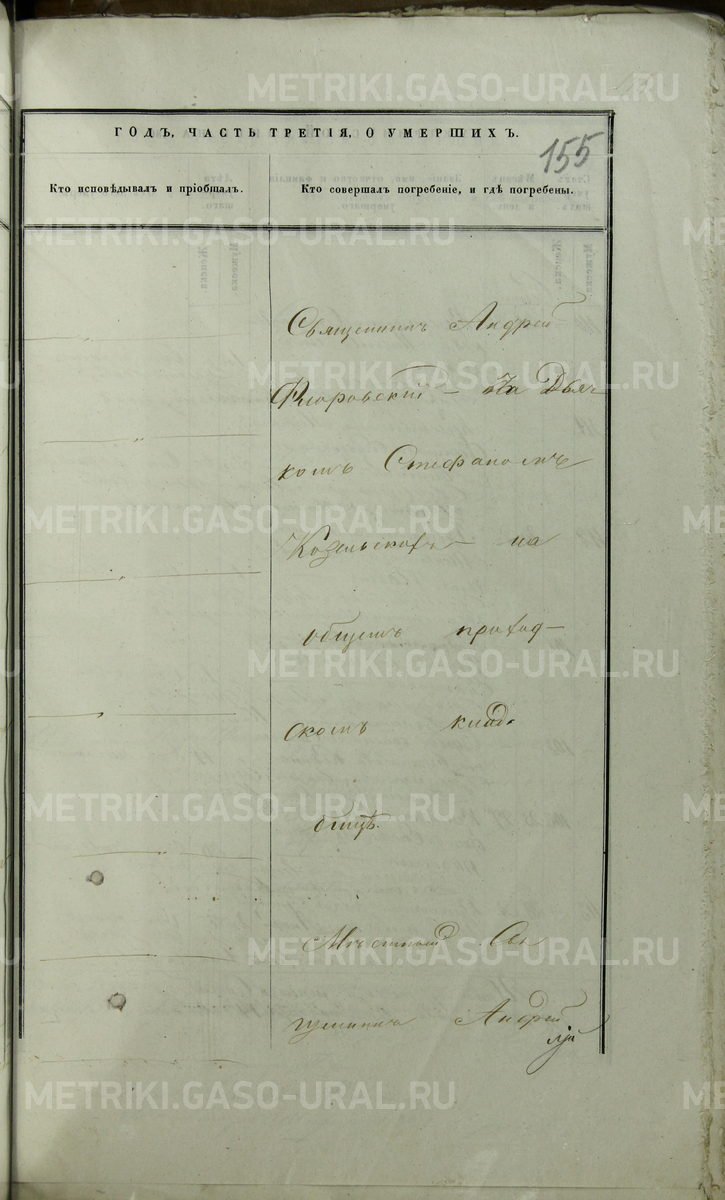 METRIKI.GASO-URAL.RU
ГОДЪ, ЧАСТЬ ТРЕТІЯ, О УМЕРШИХЪ.
155
Кто исповѣдывалъ и пріобщалъ.
Кто совершалъ погребеніе, и гдѣ погребены.
Священникъ Андрей
Флоровскій – съ Дьяч
комъ Стефаномъ
на
общемъ приход–
скомъ клад
бищѣ.
Мѣстный Свя
щенникъ Андрей